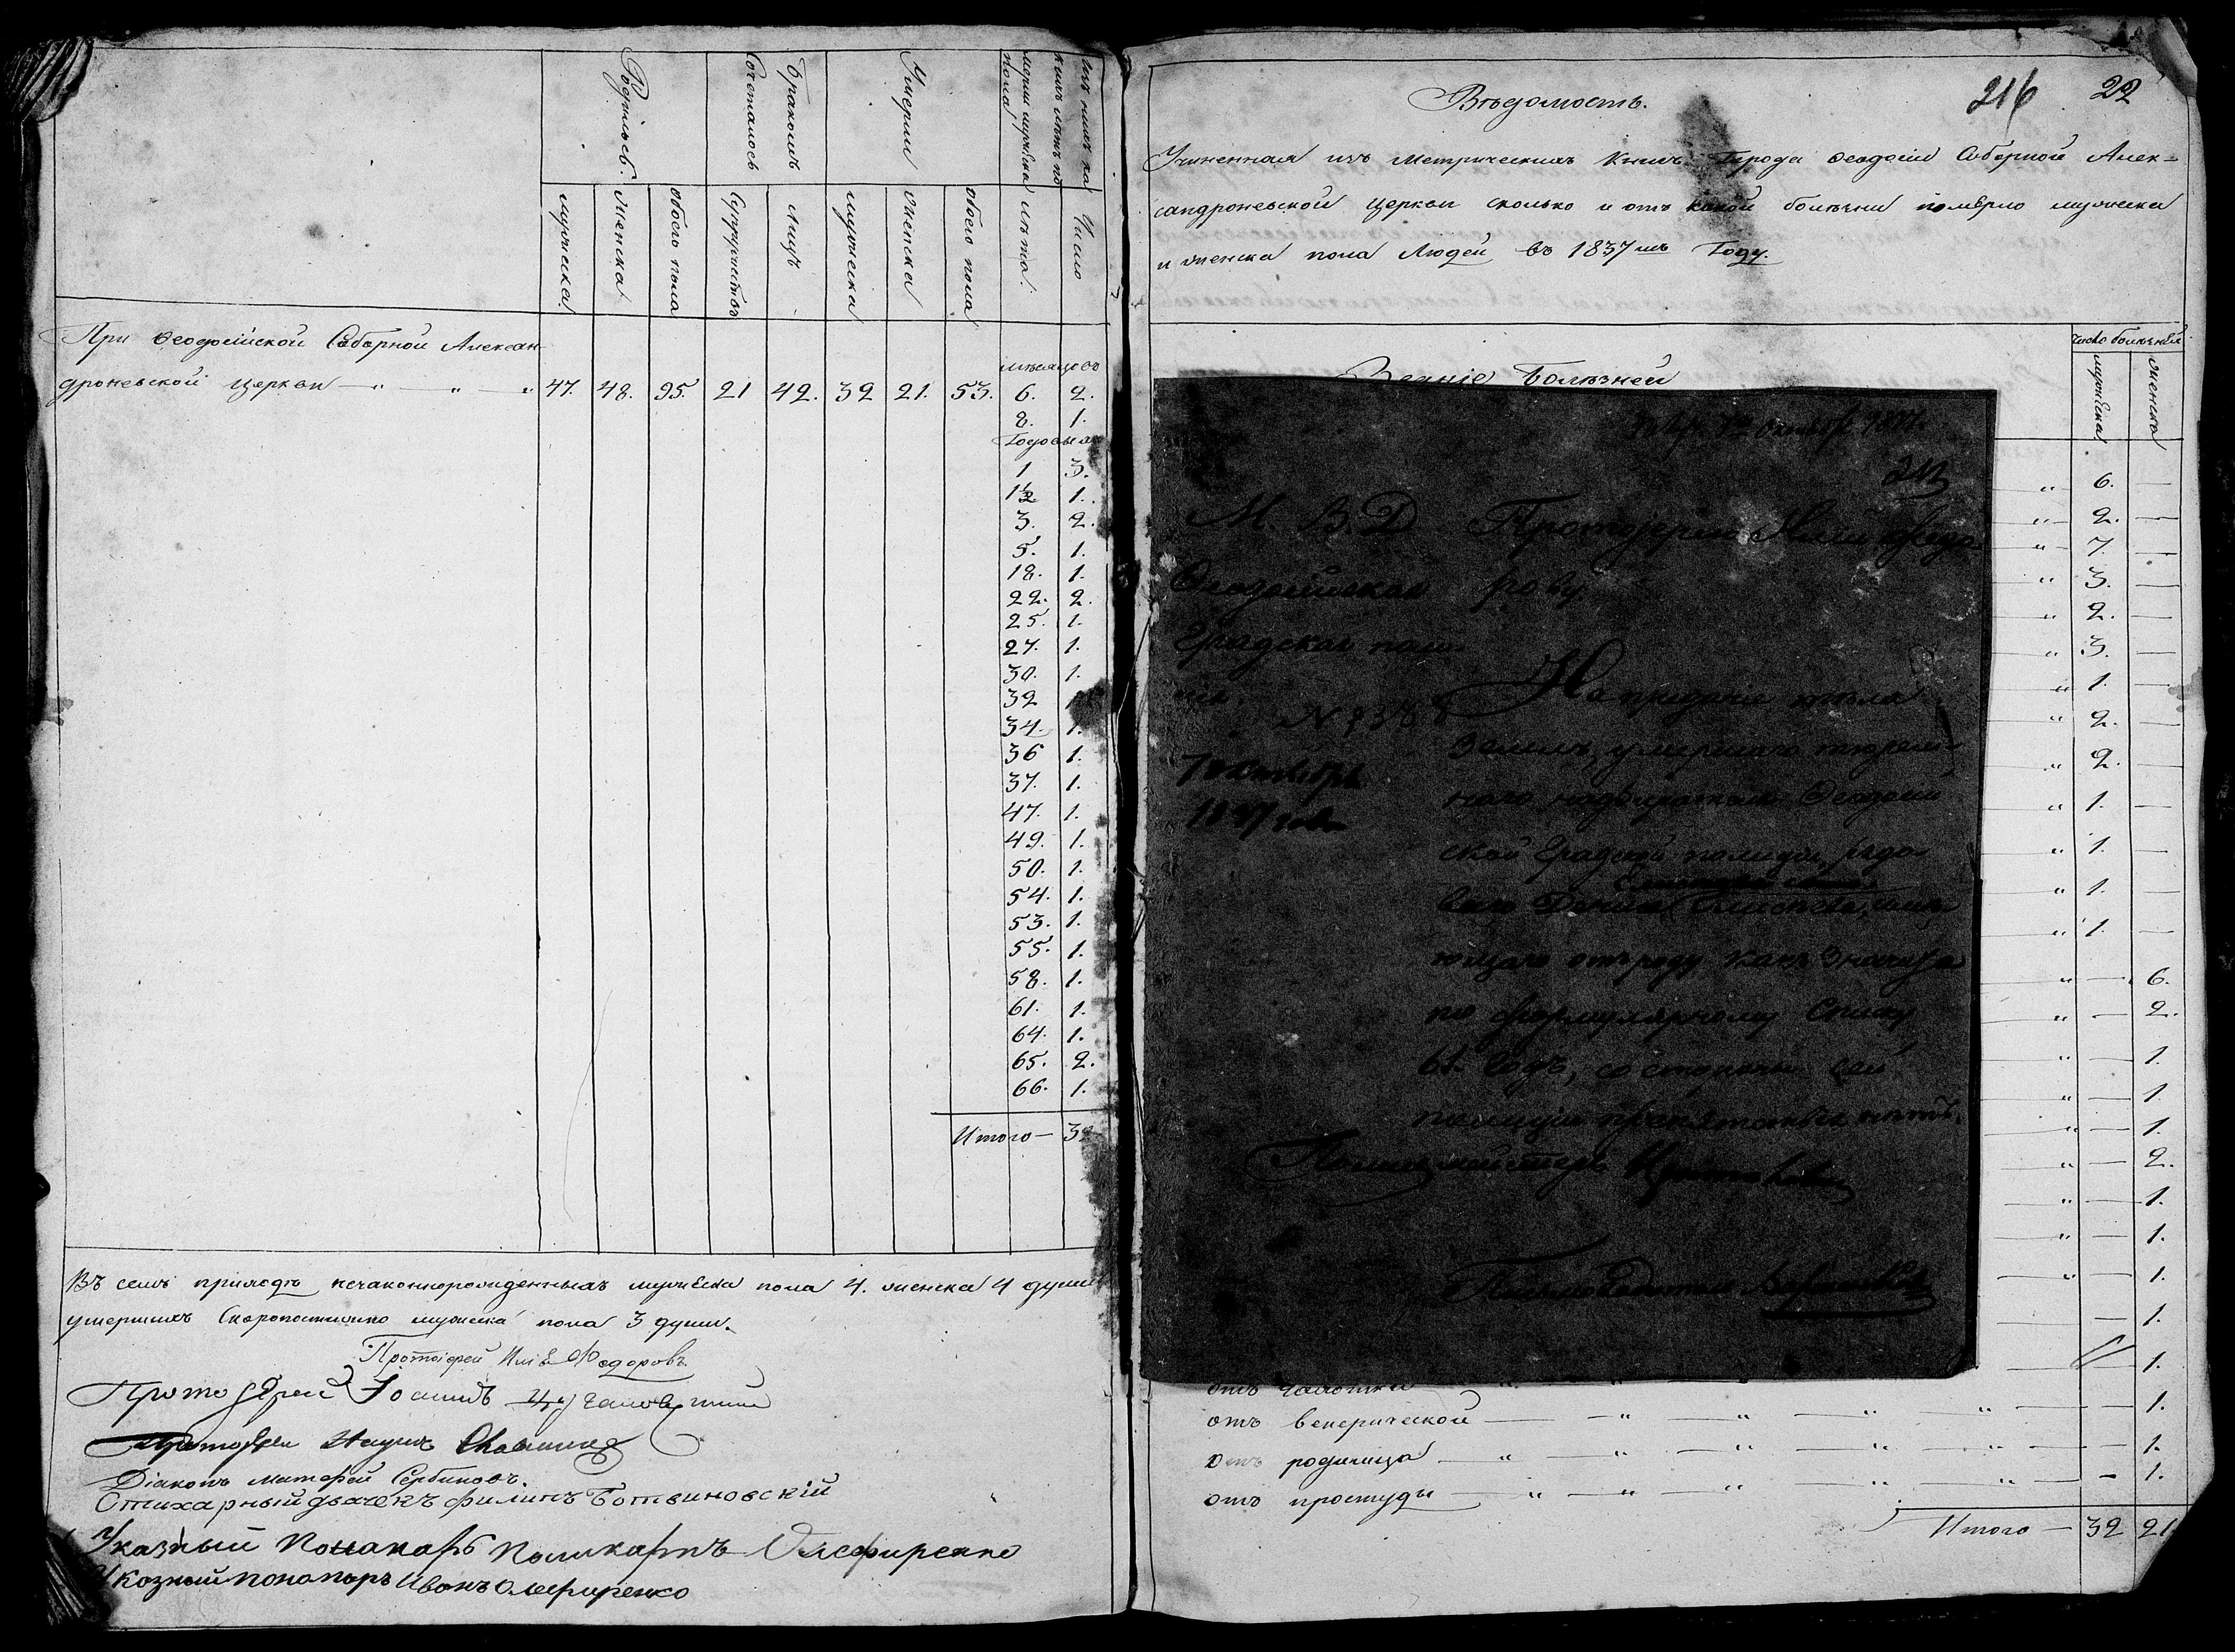 Родилось.
Бракомъ Сочеталось
Умерли
Изъ нихъ ка
кихъ лѣтъ по
мерли мужеска
пола
мужеска
женска
обоего пола
Супружествъ
лицъ
мужеска
женска
обоего пола
лѣта.
Число
При Ѳеодосійской Соборной Алексан-
мѣсяцовъ
дроневской Церкви — „ — „ — „ 47. 48. 95. 21 42. 32 21. 53. 6. 2.
8. 1.
Годовыхъ
1 3.
1½ 1.
3. 2.
5. 1.
18. 1.
22. 2.
25. 1.
27. 1.
30. 1.
32
34. 1.
36 1.
37. 1.
47. 1.
49. 1.
50. 1.
54. 1.
53. 1.
55. 1.
58. 1.
61. 1.
64. 1.
65. 2.
66. 1.
Итого — 32
Въ семъ приходѣ незаконнорожденныхъ мужеска пола 4. женска 4 души
умершихъ Скоропостижно мужеска пола 3 души.
Протоіерей Илія Федоровъ
Протоіерей Іоаннъ
Протоіерей
Діаконъ Матфей Сербиновъ.
Стихарный дьячекъ Филипъ Ботвиновскій
Указный Понамарь Поликарпъ Олефиренко
Указный пономарь Иванъ Олефиренко
216 22
Вѣдомость.
Учиненная изъ Метрическихъ Книгъ Города Ѳеодосіи Соборной Алек-
сандроневской Церкви сколько и отъ какой болѣзни померло мужеска
и женска пола Людей въ 1837мъ Году.
Число болѣзней
Званіе Болѣзней
мужеска
женска
„ 6. —
„ 2. —
„ 7. —
„ 3. —
„ 2. —
„ 3. —
„ 1. —
„ 2. —
„ 2. —
„ 1. —
„ 1. —
„ 1. —
„ 1. —
„ — 6.
„ — 2.
„ — 1.
„ — 1.
„ — 1.
„ — 2.
„ — 1.
„ — 1.
„ — 1.
— 1.
— 1.
октября 1837
211
М. В. Д. Протоіерею Иліи Федо-
Ѳеодосійская рову
Градская поли-
ція.
№
7 октября
1837 года
На преданіе тѣла
землѣ, умершаго
Ѳеодосій-
ской Градской полиціи, рядо-
ваго
ющаго отъ роду какъ значится
по формулярному Списку
61. Годъ, со стороны сей
полиціи препятствія нѣтъ.
Полицмейстеръ
Письмоводитель
отъ чахотки
отъ венерической — „ — „ — „ — „ — 1.
отъ родимца — „ — „ — „ — „ — 1.
отъ простуды — „ — „ — „ — „ — 1.
Итого — 32 21